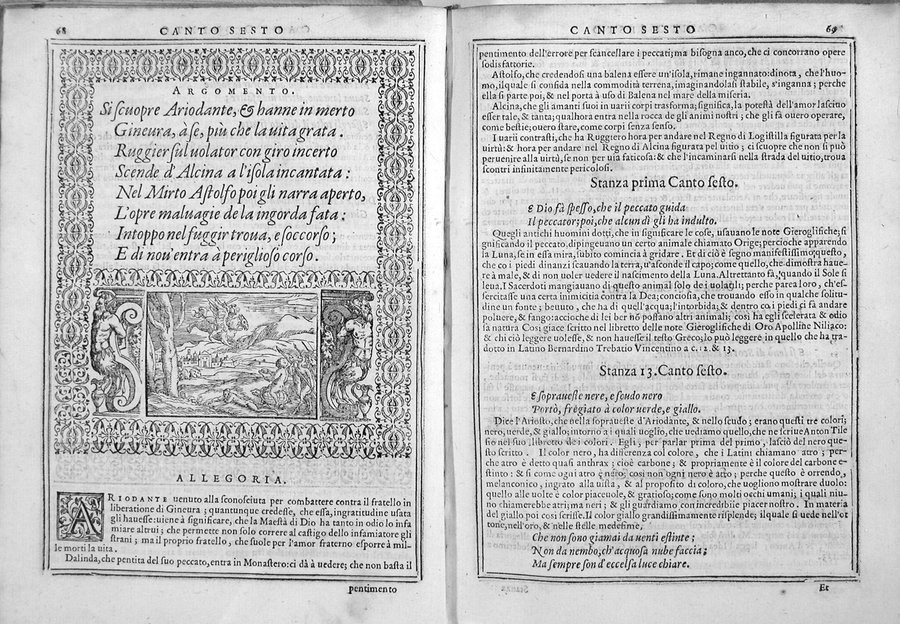 68 CANTO SESTO
ARGOMENTO.
Si scuopre Ariodante, & hanne in merto
Gineura, à se, più che la uita grata.
Ruggier sul uolator con giro incerto
Scende d'Alcina a l'isola incantata:
Nel Mirto Astolfo poi gli narra aperto,
L'opre maluagie de la ingorda fata:
Intoppo nel fuggir troua, e soccorso;
E di nou' entra à periglioso corso.
ALLEGORIA.
ARIODANTE uenuto alla sconosciuta per combattere contra il fratello in
liberatione di Gineura; quantunque credesse, che essa, ingratitudine usata
gli hauesse: uiene à significare, che la Maestà di Dio ha tanto in odio lo infa
miare altrui; che permette non solo correre al castigo dello infamiatore gli
strani; ma il proprio fratello, che suole per l'amor fraterno esporre à mil-
le morti la uita.
Dalinda, che pentita del suo peccato, entra in Monastero: ci dà à uedere; che non basta il
pentimento
CANTO SESTO 69
pentimento dell'errore per scancellare i peccati; ma bisogna anco, che ci concorrano opere
sodisfattorie.
Astolfo, che credendosi una balena essere un'isola, rimane ingannato: dinota, che l'huo-
mo, ilquale si confida nella commodità terrena, imaginandolasi stabile, s'inganna; perche
ella si parte poi, & nel porta à uso di Balena nel mare della miseria.
Alcina, che gli amanti suoi in uarii corpi trasforma; significa, la potestà dell'amor lasciuo
esser tale, & tanta; qualhora entra nella rocca de gli animi nostri; che gli fà ouero operare,
come bestie; ouero stare, come corpi senza senso.
I uarii contrasti, che ha Ruggero hora per andare nel Regno di Logistilla figurata per la
uirtù: & hora per andare nel Regno di Alcina figurata pel uitio; ci scuopre che non si può
peruenire alla uirtù, se non per uia faticosa: & che l'incaminarsi nella strada del uitio, troua
scontri infinitamente pericolosi.
Stanza prima Canto sesto.
E Dio fà spesso, che il peccato guida
Il peccator; poi, che alcun dì gli ha indulto.
Quegli antichi huomini dotti, che in significare le cose, usauano le note Gieroglifiche; si
gnificando il peccato, dipingeuano un certo animale chiamato Orige; percioche apparendo
la Luna, se in essa mira, subito comincia à gridare. Et di ciò è segno manifestissimo; questo,
che co i piedi dinanzi scauando la terra, u'asconde il capo; come quello, che dimostra haue-
re à male, & di non uoler uedere il nascimento della Luna. Altrettanto fà, quando il Sole si
leua. I Sacerdoti mangiauano di questo animal solo dei uolatili; perche parea loro, ch'es-
sercitasse una certa inimicitia contra la Dea; conciosia, che trouando esso in qualche solitu-
dine un fonte; beuuto, che ha di quell'acqua; l'intorbida; & dentro co i piedi ci fà andare
poluere, & fango: accioche di lei ber nō possano altri animali; cosi ha egli scelerata & odio
sa natura Cosi giace scritto nel libretto delle note Gieroglifiche di Oro Apolline Niliaco:
& chi ciò leggere uolesse, & non hauesse il testo Greco; lo può leggere in quello che ha tra-
dotto in Latino Bernardino Trebatio Vincentino a c. 12. & 13.
Stanza 13. Canto sesto.
E soprauesте nere, e scudo nero
Portò, fregiato à color uerde, e giallo.
Dice l'Ariosto, che nella soprauesте d'Ariodante, & nello scudo; erano questi tre colori;
nero, uerde, & giallo; intorno a i quali uoglio, che uediamo quello, che ne scriue Anton Tile
sio nel suo libretto dei colori. Egli, per parlar prima del primo, lasciò del nero que-
sto scritto. Il color nero, ha differenza col colore, che i Latini chiamano atro; per-
che atro è detto quasi anthrax; cioè carbone; & propriamente è il colore del carbone e-
stinto: & si come ogni atro è nero; cosi non ogni nero è atro; perche questo è orrendo,
melanconico, ingrato alla uista, & al proposito di coloro, che uogliono mostrare duolo:
quello alle uolte è color piaceuole, & gratioso; come sono molti occhi umani; i quali niu-
no chiamerebbe atri; ma neri; & gli guardiamo con incredibile piacer nostro. In materia
del giallo poi cosi scrisse. Il color giallo grandissimamente risplende; ilquale si uede nell'ot
tone, nell'oro, & nelle stelle medesime,
Che non son giamai da uenti estinte;
Non da nembo, ch'acquosa nube faccia;
Ma sempre son d'eccelsa luce chiare.
Et